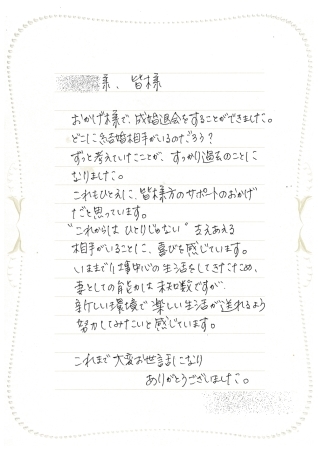 様、皆様
おかげ様で、成婚退会をすることができました。
どこに結婚相手がいるのだろう？
ずっと考えていたことが、すっかり過去のことに
なりました。
これもひとえに、皆様方のサポートのおかげ
だと思っています。
"これからは ひとりじゃない" 支えあえる
相手がいることに、喜びを感じています。
いままで仕事中心の生活をしてきたため、
妻としての能力は未知数ですが
新しい環境で楽しい生活が送れるよう
努力してみたいと感じています。
これまで大変お世話になり
ありがとうございました。